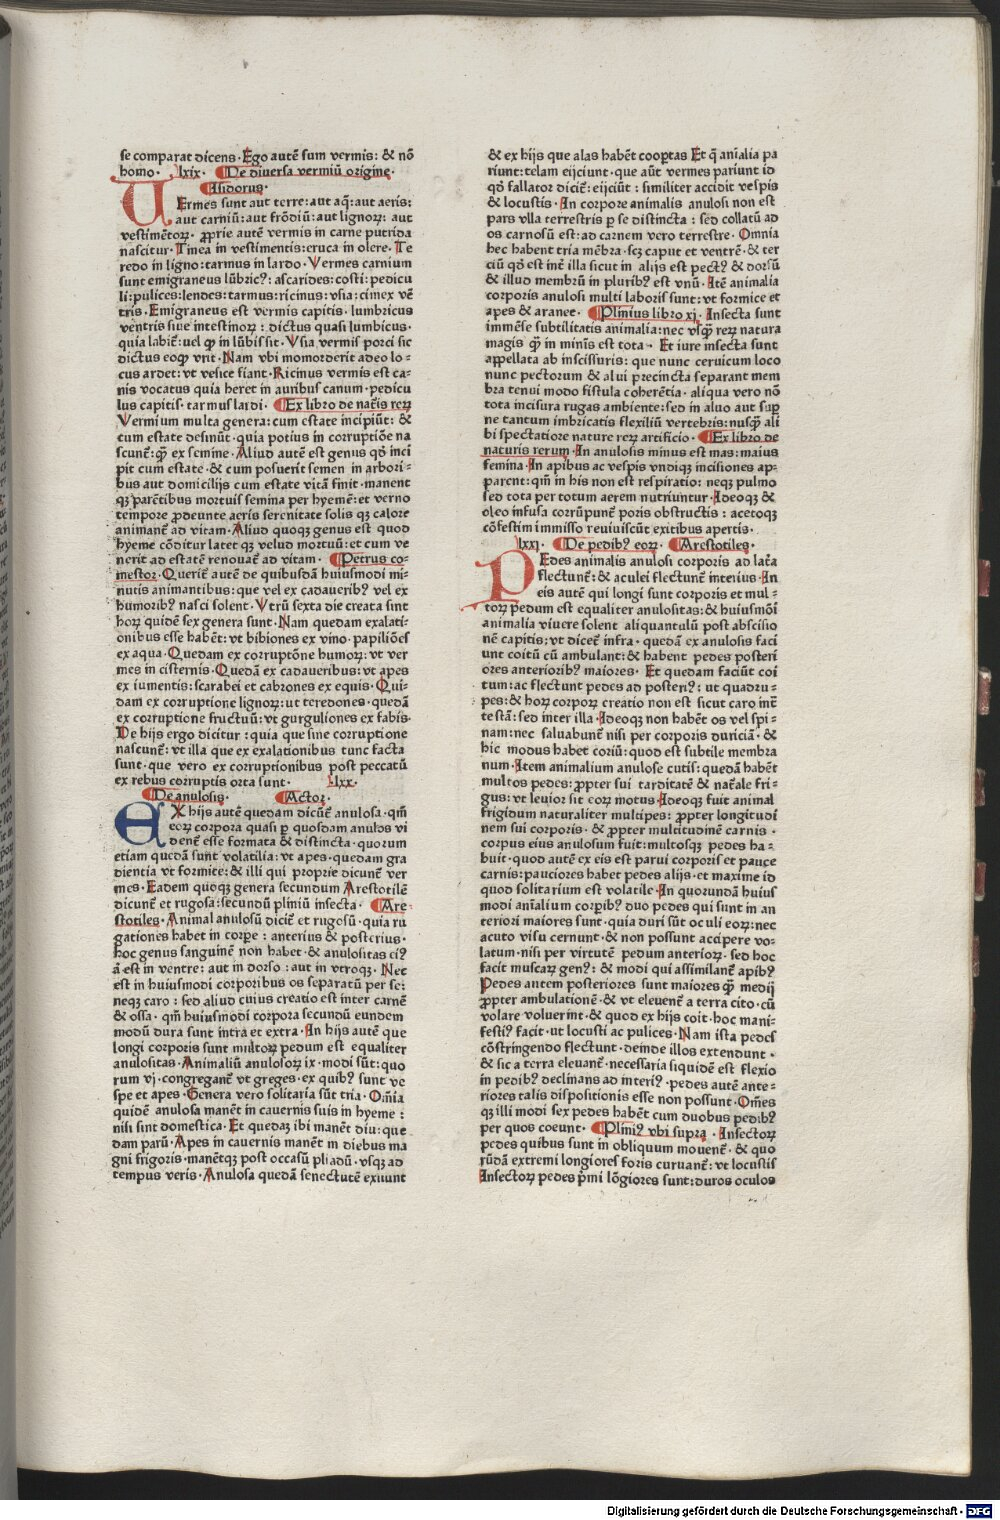 se comparat dicens · Ego autē sum vermis: & nō
homo · lxix · De diuersa vermiū origine ·
Isidorus ·
VErmes sunt aut terre: aut aq̄: aut aeris:
aut carniū: aut frōdiū: aut lignoꝝ: aut
vestimētoꝝ · ꝓprie autē vermis in carne putrida
nascitur · Tinea in vestimentis: eruca in olere · Te
redo in ligno: tarmus in lardo · Vermes carnium
sunt emigraneus lūbricꝰ: ascarides: costi: pedicu
li: pulices: lendes: tarmus: ricinus: vsia: cimex vē
tris · Emigraneus est vermis capitis · lumbricus
ventris siue intestinoꝝ : dictus quasi lumbicus ·
quia labit᷑: uel ꝙ in lūbis sit · Vsia vermis porci sic
dictus eoꝙ vrit · Nam vbi momorderit adeo lo-
cus ardet: vt vesice fiant · Ricinus vermis est ca-
nis vocatus quia heret in auribus canum · pedicu
lus capitis · tarmus lardi · Ex libro de nat᷑is reꝝ
Vermium multa genera: cum estate incipiūt: &
cum estate desinūt · quia potius in corruptiōe na
scunt᷑: ꝙ̄ ex semine · Aliud autē est genus qd̄ inci
pit cum estate · & cum posuerit semen in arbori-
bus aut domicilijs cum estate vitā finit · manent
qꝫ parētibus mortuis semina per hyemē: et verno
tempore ꝓdeunte aeris serenitate solis qꝫ calore
animant᷑ ad vitam · Aliud quoqꝫ genus est quod
hyeme cōditur latet qꝫ velud mortuū: et cum ve
nerit ad estatē renouat᷑ ad vitam · Petrus co-
mestor · Querit᷑ autē de quibusdā huiusmodi mi-
nutis animantibus: que vel ex cadaueribꝰ vel ex
humoribꝰ nasci solent · Vtrū sexta die creata sint
hoꝝ quidē sex genera sunt · Nam quedam exalati-
onibus esse habēt: vt bibiones ex vino · papiliōes
ex aqua · Quedam ex corruptōne humoꝝ: vt ver
mes in cisternis · Quedā ex cadaueribus: vt apes
ex iumentis: scarabei et cabrones ex equis · Qui-
dam ex corruptione lignoꝝ: ut teredones · quedā
ex corruptione fructuū: vt gurguliones ex fabis ·
De hijs ergo dicitur : quia que sine corruptione
nascunt᷑: vt illa que ex exalationibus tunc facta
sunt · que vero ex corruptionibus post peccatū
ex rebus corruptis orta sunt · lxx ·
De anulosis · Actor ·
EX hijs autē quedam dicunt᷑ anulosa · qm̄
eoꝝ corpora quasi ꝑ quosdam anulos vi
dent᷑ esse formata & distincta · quorum
etiam quedā sunt volatilia: vt apes · quedam gra
dientia vt formice: & illi qui proprie dicunt᷑ ver
mes · Eadem quoqꝫ genera secundum Arestotilē
dicunt᷑ et rugosa: secundū pliniū insecta · Are
stotiles · Animal anulosū dicit᷑ et rugosū · quia ru
gationes habet in corꝑe : anterius & posterius ·
hoc genus sanguinē non habet · & anulositas ciꝰ
ā est in ventre: aut in dorso : aut in vtroqꝫ · Nec
est in huiusmodi corporibus os separatū per se:
neqꝫ caro : sed aliud cuius creatio est inter carnē
& ossa · qm̄ huiusmodi corpora secundū eundem
modū dura sunt intra et extra · In hijs autē que
longi corporis sunt multoꝝ pedum est equaliter
anulositas · Animaliū anulosoꝝ ix · modi sūt: quo
rum vj · congregant᷑ vt greges · ex quibꝰ sunt ve
spe et apes · Genera vero solitaria sūt tria · Om̄ia
quidē anulosa manēt in cauernis suis in hyeme :
nisi sint domestica · Et quedaꝫ ibi manēt diu: que
dam parū · Apes in cauernis manēt in diebus ma
gni frigoris · manētqꝫ post occasū pliadū · vsqꝫ ad
tempus veris · Anulosa quedā senectutē exuunt
& ex hijs que alas habēt cooptas Et q̄ aīalia pa
riunt: telam eijciunt · que aūt vermes pariunt id
qd̄ fallatoz dicit᷑: eijciūt : similiter accidit vespis
& locustis · In corpore animalis anulosi non est
pars vlla terrestris ꝑ se distincta : sed collatū ad
os carnosū est: ad carnem vero terrestre · Omnia
hec habent tria mēbra · scꝫ caput et ventrē · & ter
ciū qd̄ est int᷑ illa sicut in alijs est pectꝰ & dorsū
& illud membrū in pluribꝰ est vnū · Itē animalia
corporis anulosi multi laboris sunt: vt formice et
apes & aranee · Plinius libro xj · Insecta sunt
immēse subtilitatis animalia: nec vsqꝙ reꝝ natura
magis ꝙ̄ in minīs est tota · Et iure insecta sunt
appellata ab inscissuris: que nunc ceruicum loco
nunc pectorum & alui precincta separant mem
bra tenui modo fistula coherētia · aliqua vero nō
tota incisura rugas ambiente: sed in aluo aut suꝑ
ne tantum imbricatis flexiliū vertebris: nusꝙ̄ ali
bi spectatiore nature reꝝ artificio · Ex libro de
naturis rerum · In anulosis minus est mas: maius
femina · In apibus ac vespis vndiqꝫ incisiones ap-
parent: qm̄ in his non est respiratio: neqꝫ pulmo
sed tota per totum aerem nutriuntur · Ideoqꝫ &
oleo infusa corrūpunt᷑ poris obstructis : acetoqꝫ
cōfestim immisso reuiuiscūt exitibus apertis ·
lxxj · De pedibꝰ eoꝝ · Arestotiles ·
PEdes animalis anulosi corporis ad lat᷑a
flectunt᷑: & aculei flectunt᷑ interius · In
eis autē qui longi sunt corporis et mul-
toꝝ pedum est equaliter anulositas: & huiusmōi
animalia viuere solent aliquantulū post abscisio
nē capitis: vt dicet᷑ infra · quedā ex anulosis faci
unt coitū cū ambulant: & habent pedes posteri
ores anterioribꝰ maiores · Et quedam faciūt coi
tum: ac flectunt pedes ad posteriꝰ: ut quadru-
pes: & hoꝝ corpoꝝ creatio non est sicut caro int᷑
testā: sed inter illa · Ideoqꝫ non habēt os vel spi-
nam: nec saluabunt᷑ nisi per corporis duriciā · &
hic modus habet coriū: quod est subtile membra
num · Item animalium anulose cutis: quedā habēt
multos pedes: ꝓpter sui tarditatē & nat᷑ale fri-
gus: vt leuior sit eoꝝ motus · Ideoqꝫ fuit animal
frigidum naturaliter multipes: ꝓpter longitudi
nem sui corporis · & ꝓpter multitudinē carnis ·
corpus eius anulosum fuit: multosqꝫ pedes ha-
buit · quod autē ex eis est parui corporis et pauce
carnis: pauciores habet pedes alijs · et maxime id
quod solitarium est volatile · In quorundā huius
modi aīalium corꝑibꝰ duo pedes qui sunt in an
teriori maiores sunt · quia duri sūt oculi eoꝝ: nec
acuto visu cernunt · & non possunt accipere vo-
latum · nisi per virtutē pedum anterioꝝ · sed hoc
facit muscaꝝ genꝰ: & modi qui assimilant᷑ apibꝰ
Pedes autem posteriores sunt maiores ꝙ̄ medij
ꝓpter ambulationē · & vt eleuent᷑ a terra cito · cū
volare voluerint · & quod ex hijs coit · hoc mani-
festiꝰ facit · ut locusti ac pulices · Nam ista pedes
cōstringendo flectunt · deinde illos extendunt ·
& sic a terra eleuant᷑ · necessaria siquidē est flexio
in pedibꝰ declinans ad interiꝰ · pedes autē ante-
riores talis dispositionis esse non possunt · Om̄es
qꝫ illi modi sex pedes habēt cum duobus pedibꝰ
per quos coeunt · Pliniꝰ vbi supra · Insectoꝝ
pedes quibus sunt in obliquum mouent᷑ · & quo
rūdā extremi longiores foris curuant᷑: vt locustis
Insectoꝝ pedes p̄mi lōgiores sunt: duros oculos
Digitalisierung gefördert durch die Deutsche Forschungsgemeinschaft · DFG